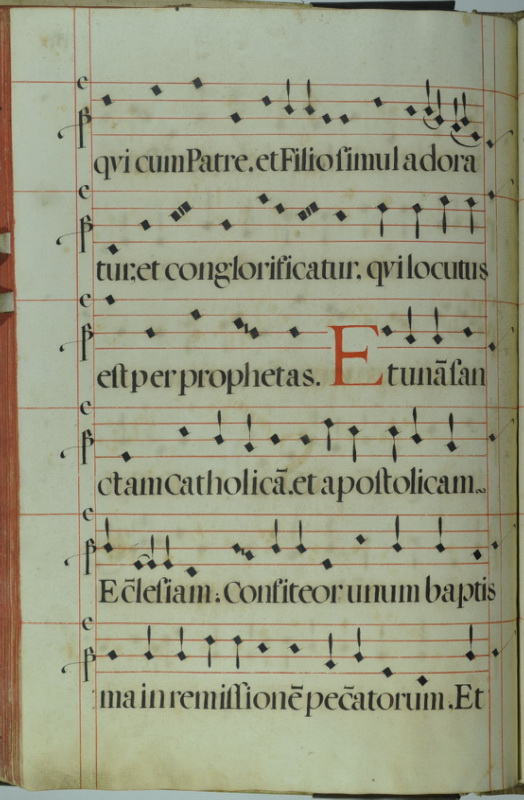 qvi cum Patre. et Filio simul adora
tur: et conglorificatur. qvi locutus
est per prophetas. Et unã san
ctam Catholicã. et apostolicam~
Ec̃lesiam: Confiteor unum baptis
ma in remissionẽ pec̃atorum. Et